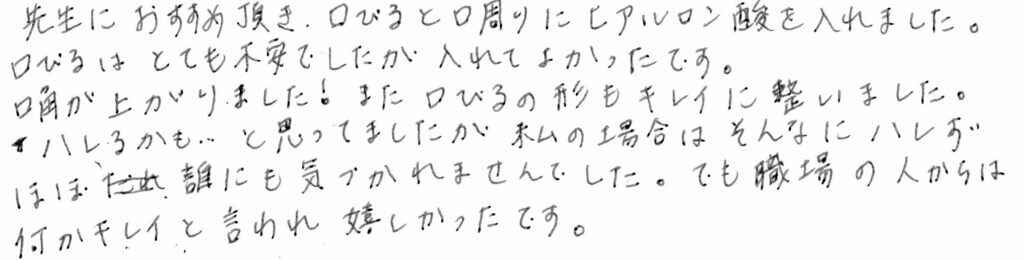 先生におすすめ頂き、口びると口周りにヒアルロン酸を入れました。
口びるはとても不安でしたが入れてよかったです。
口角が上がりました！また口びるの形もキレイに整いました。
ハレるかも…と思ってましたが私の場合はそんなにハレず
ほぼ誰にも気づかれませんでした。でも職場の人からは
何かキレイと言われ嬉しかったです。